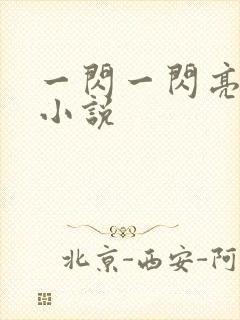 一閃一閃亮
小說
北京-西安-阿